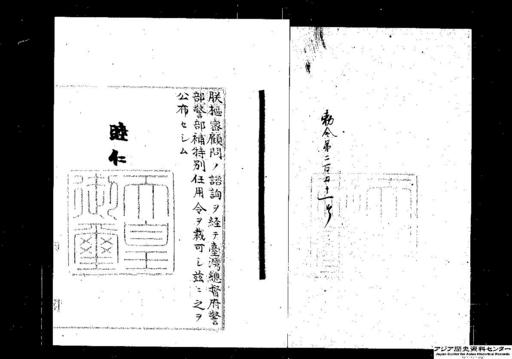 勅令第二百五十一号
朕枢密顧問ノ諮詢ヲ経テ臺灣総督府警
部警部補特別任用令ヲ裁可シ茲ニ之ヲ
公布セシム
睦仁
天皇御璽
アジア歴史資料センター
Japan Center for Asian Historical Records